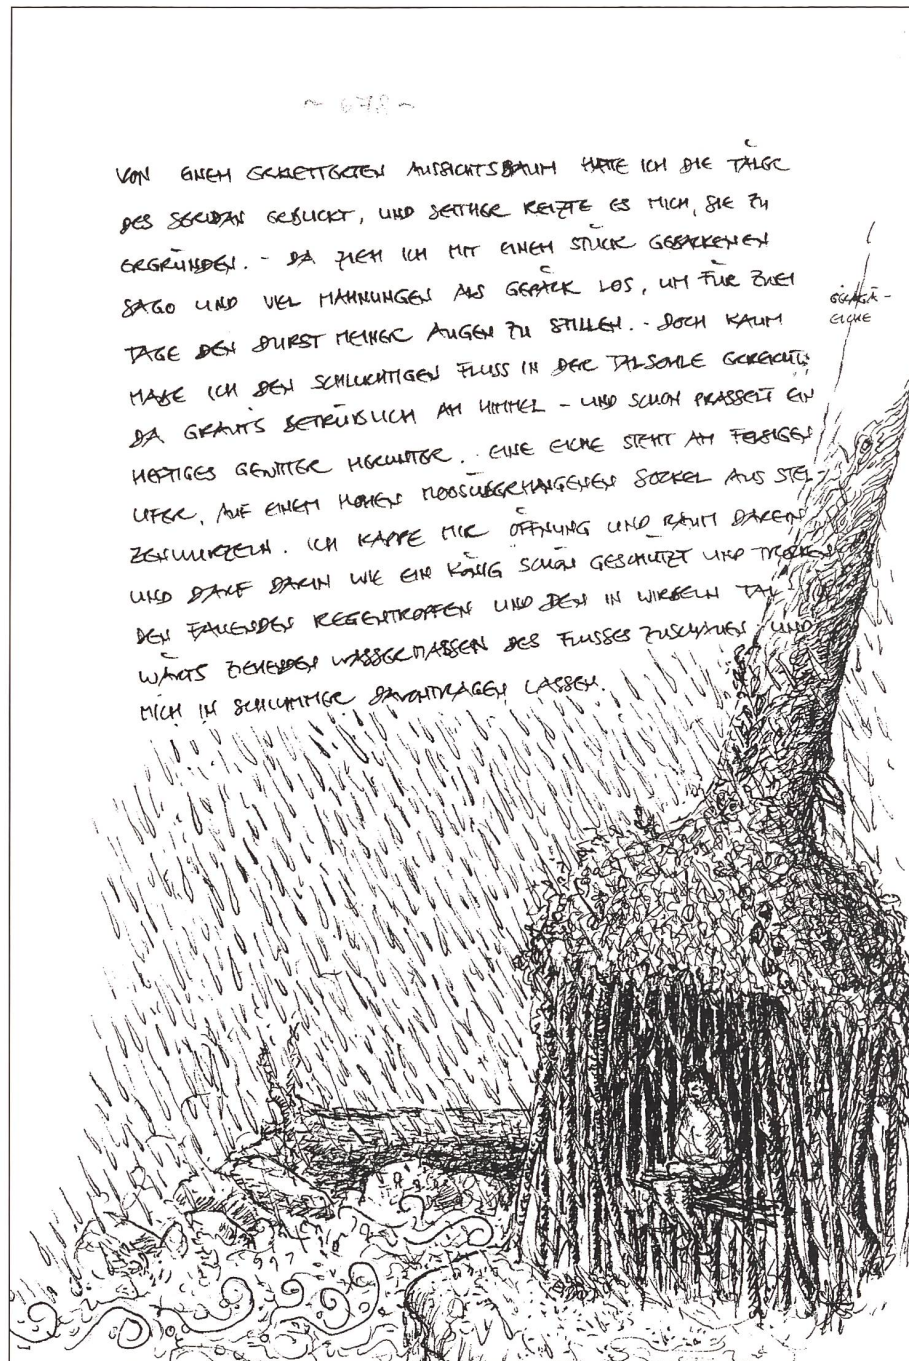 VON EINEM GEKLETTERTEN AUSSICHTSBAUM HATTE ICH DIE TÄLER
DES SERIDAN GEBLICKT, UND SEITHER REIZTE ES MICH, SIE ZU
ERGRÜNDEN. - DA ZIEH ICH MIT EINEM STÜCK GEBACKENEN
SAGO UND VIEL MAHNUNGEN ALS GEPÄCK LOS, UM FÜR ZWEI
TAGE DEN DURST MEINER AUGEN ZU STILLEN. - DOCH KAUM
HABE ICH DEN SCHLUCHTIGEN FLUSS IN DER TALSOHLE ERREICHT,
DA GRAUT'S BETRÜBLICH AM HIMMEL - UND SCHON PRASSELT EIN
HEFTIGES GEWITTER HERUNTER. EINE EICHE STEHT AM FELSIGEN
UFER, AUF EINEM HOHEN MOOSÜBERHANGENEN SOCKEL AUS STEL-
ZENWURZELN. ICH KAPPE MIR ÖFFNUNG UND RAUM DAREIN
UND DARF DARIN WIE EIN KÖNIG SCHÖN GESCHÜTZT UND TROCKEN
DEN FALLENDEN REGENTROPFEN UND DEN IN WIRBELN TAL-
WÄRTS ZIEHENDEN WASSERMASSEN DES FLUSSES ZUSCHAUEN UND
MICH IN SCHLUMMER DAVONTRAGEN LASSEN.
EICHE